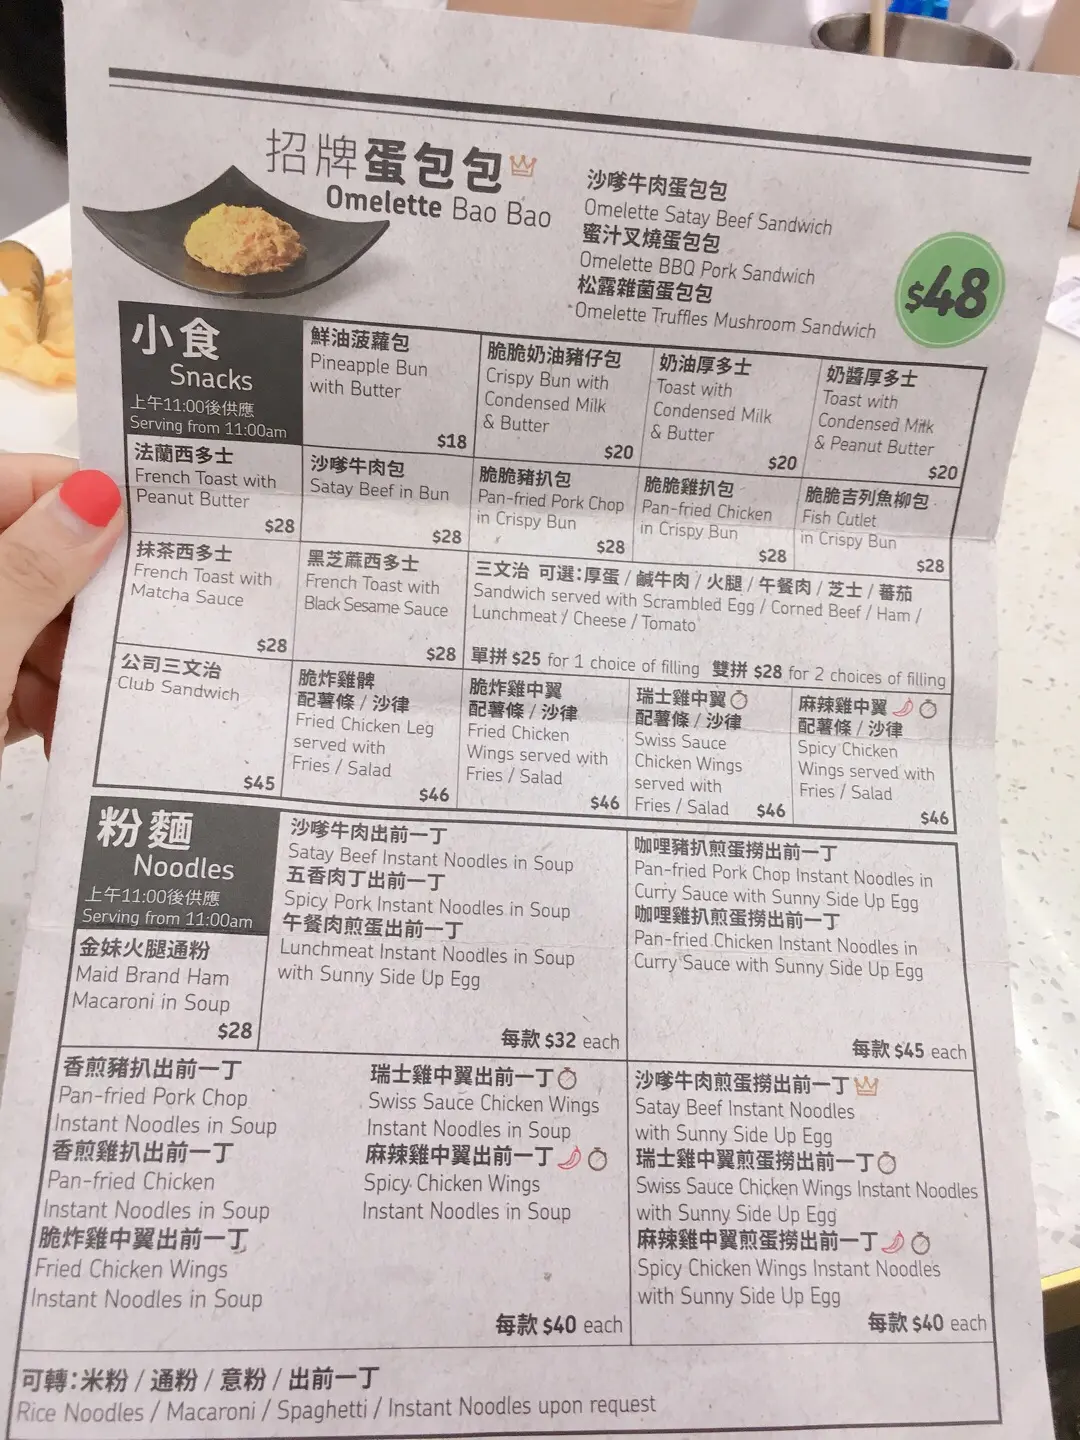 招牌蛋包包
Omelette Bao Bao
沙嗲牛肉蛋包包
Omelette Satay Beef Sandwich
蜜汁叉燒蛋包包
Omelette BBQ Pork Sandwich
松露雜菌蛋包包
Omelette Truffles Mushroom Sandwich
$48
小食
Snacks
上午11:00後供應
Serving from 11:00am
鮮油菠蘿包
Pineapple Bun
with Butter
$18
脆脆奶油豬仔包
Crispy Bun with
Condensed Milk
& Butter
$20
奶油厚多士
Toast with
Condensed Milk
& Butter
$20
奶醬厚多士
Toast with
Condensed Milk
& Peanut Butter
$20
法蘭西多士
French Toast with
Peanut Butter
$28
沙嗲牛肉包
Satay Beef in Bun
$28
脆脆豬扒包
Pan-fried Pork Chop
in Crispy Bun
$28
脆脆雞扒包
Pan-fried Chicken
in Crispy Bun
$28
脆脆吉列魚柳包
Fish Cutlet
in Crispy Bun
$28
抹茶西多士
French Toast with
Matcha Sauce
$28
黑芝蔴西多士
French Toast with
Black Sesame Sauce
$28
三文治 可選:厚蛋 / 鹹牛肉 / 火腿 / 午餐肉 / 芝士 / 蕃茄
Sandwich served with Scrambled Egg / Corned Beef / Ham /
Lunchmeat / Cheese / Tomato
單拼 $25 for 1 choice of filling 雙拼 $28 for 2 choices of filling
公司三文治
Club Sandwich
$45
脆炸雞髀
配薯條 / 沙律
Fried Chicken Leg
served with
Fries / Salad
$46
脆炸雞中翼
配薯條 / 沙律
Fried Chicken
Wings served with
Fries / Salad
$46
瑞士雞中翼
配薯條 / 沙律
Swiss Sauce
Chicken Wings
served with
Fries / Salad $46
麻辣雞中翼
配薯條 / 沙律
Spicy Chicken
Wings served with
Fries / Salad
$46
粉麵
Noodles
上午11:00後供應
Serving from 11:00am
金妹火腿通粉
Maid Brand Ham
Macaroni in Soup
$28
沙嗲牛肉出前一丁
Satay Beef Instant Noodles in Soup
五香肉丁出前一丁
Spicy Pork Instant Noodles in Soup
午餐肉煎蛋出前一丁
Lunchmeat Instant Noodles in Soup
with Sunny Side Up Egg
每款 $32 each
咖哩豬扒煎蛋撈出前一丁
Pan-fried Pork Chop Instant Noodles in
Curry Sauce with Sunny Side Up Egg
咖哩雞扒煎蛋撈出前一丁
Pan-fried Chicken Instant Noodles in
Curry Sauce with Sunny Side Up Egg
每款 $45 each
香煎豬扒出前一丁
Pan-fried Pork Chop
Instant Noodles in Soup
香煎雞扒出前一丁
Pan-fried Chicken
Instant Noodles in Soup
脆炸雞中翼出前一丁
Fried Chicken Wings
Instant Noodles in Soup
瑞士雞中翼出前一丁
Swiss Sauce Chicken Wings
Instant Noodles in Soup
麻辣雞中翼出前一丁
Spicy Chicken Wings
Instant Noodles in Soup
每款 $40 each
沙嗲牛肉煎蛋撈出前一丁
Satay Beef Instant Noodles
with Sunny Side Up Egg
瑞士雞中翼煎蛋撈出前一丁
Swiss Sauce Chicken Wings Instant Noodles
with Sunny Side Up Egg
麻辣雞中翼煎蛋撈出前一丁
Spicy Chicken Wings Instant Noodles
with Sunny Side Up Egg
每款 $40 each
可轉:米粉 / 通粉 / 意粉 / 出前一丁
Rice Noodles / Macaroni / Spaghetti / Instant Noodles upon request